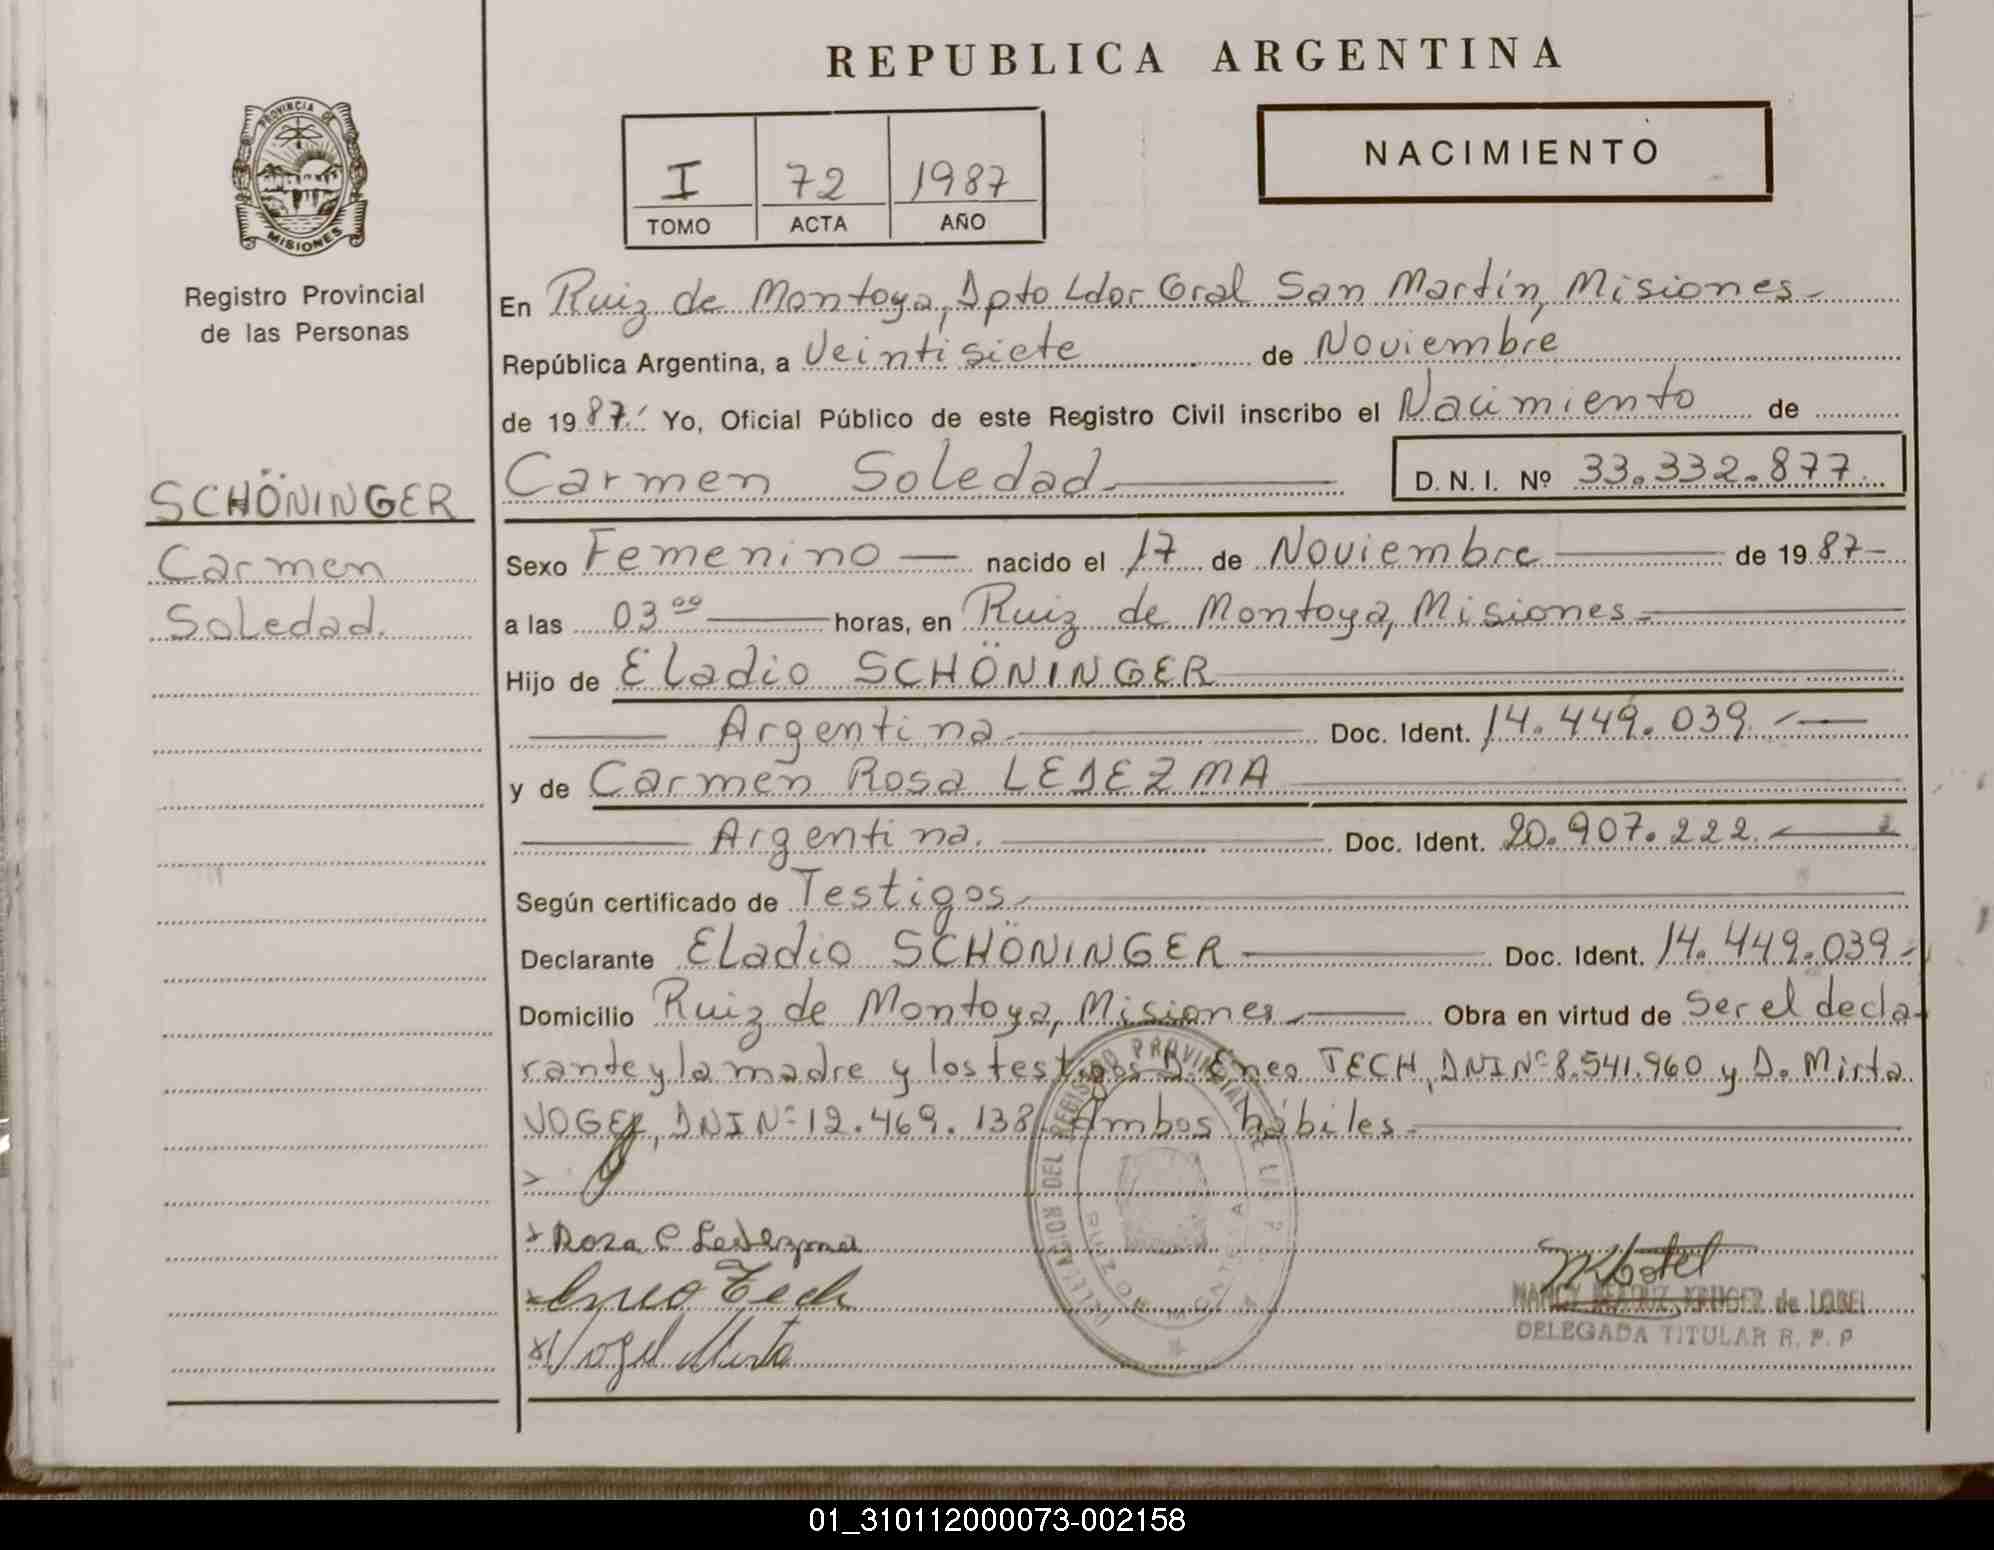 REPUBLICA ARGENTINA
PROVINCIA DE
MISIONES
Registro Provincial
de las Personas
I 72 1987
TOMO ACTA AÑO
NACIMIENTO
En Ruiz de Montoya, Dpto Ldor Gral San Martín, Misiones
República Argentina, a Veintisiete de Noviembre
de 1987. Yo, Oficial Público de este Registro Civil inscribo el Nacimiento de
SCHÖNINGER
Carmen
Soledad.
Carmen Soledad D. N. I. Nº 33.332.877.
Sexo Femenino nacido el 17 de Noviembre de 1987
a las 03 00 horas, en Ruiz de Montoya, Misiones
Hijo de Eladio SCHÖNINGER
Argentina Doc. Ident. 14.449.039.
y de Carmen Rosa LEDEZMA
Argentina. Doc. Ident. 20.907.222.
Según certificado de Testigos
Declarante Eladio SCHÖNINGER Doc. Ident. 14.449.039
Domicilio Ruiz de Montoya, Misiones Obra en virtud de ser el decla-
rante y la madre y los testigos D. Eneo TECH, DNI Nº 8.541.960 y D. Mirta
VOGEL, DNI Nº 12.469.138. Ambos hábiles
Rosa C Ledezma
Eneo Tech
Vogel Mirta
DELEGACION DEL REGISTRO PROVINCIAL DE LAS P.
RUIZ DE MONTOYA
de LOBEL
DELEGADA TITULAR R. P. P
01_310112000073-002158